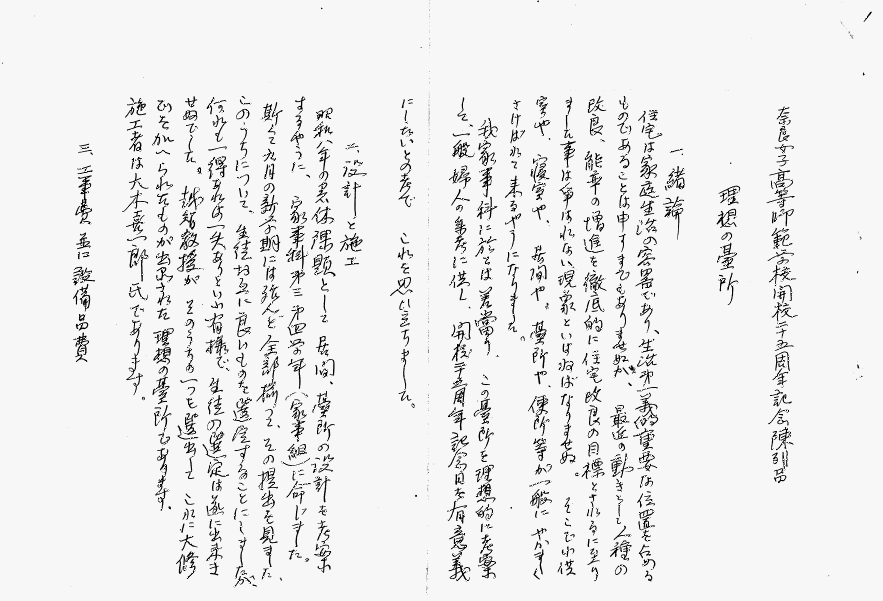 奈良女子高等師範学校開校二十五周年記念陳列品
理想の臺所
一、緒論
住宅は家庭生活の容器であり、生活第一義的重要な位置を占める
ものであることは申すまでもありませぬが、最近の動きとして人種の
改良、能率の増進を徹底的に住宅改良の目標とされるに至り
ました事は争はれない現象といはねばなりませぬ。そこで小供
室や、寝室や、居間や、臺所や、便所等が一般にやかましく
さけばれて来るやうになりました。
我家事科に於ては差當り、この臺所を理想的に考案
して、一般婦人の参考に供し、開校二十五周年記念日を有意義
にしたいとの考で これを思い立ちました。
二、設計と施工
昭和八年の夏休課題として居間、臺所の設計を考案
するやうに、家事科第三第四学年(家事組)に命じました。
斯くて九月の新学期には殆んど全部揃つて、その提出を見ました、
このうちについて、生徒お互に良いものを選定することにしましたが、
何れも一得あれば一失ありといふ有様で、生徒の選定は遂に出来ま
せぬでした。越智教授が そのうちの一つを選出して これに大修
正を加へられたものが出品された理想の臺所であります。
施工者は大木喜一郎氏であります。
三、工事費並に設備品費